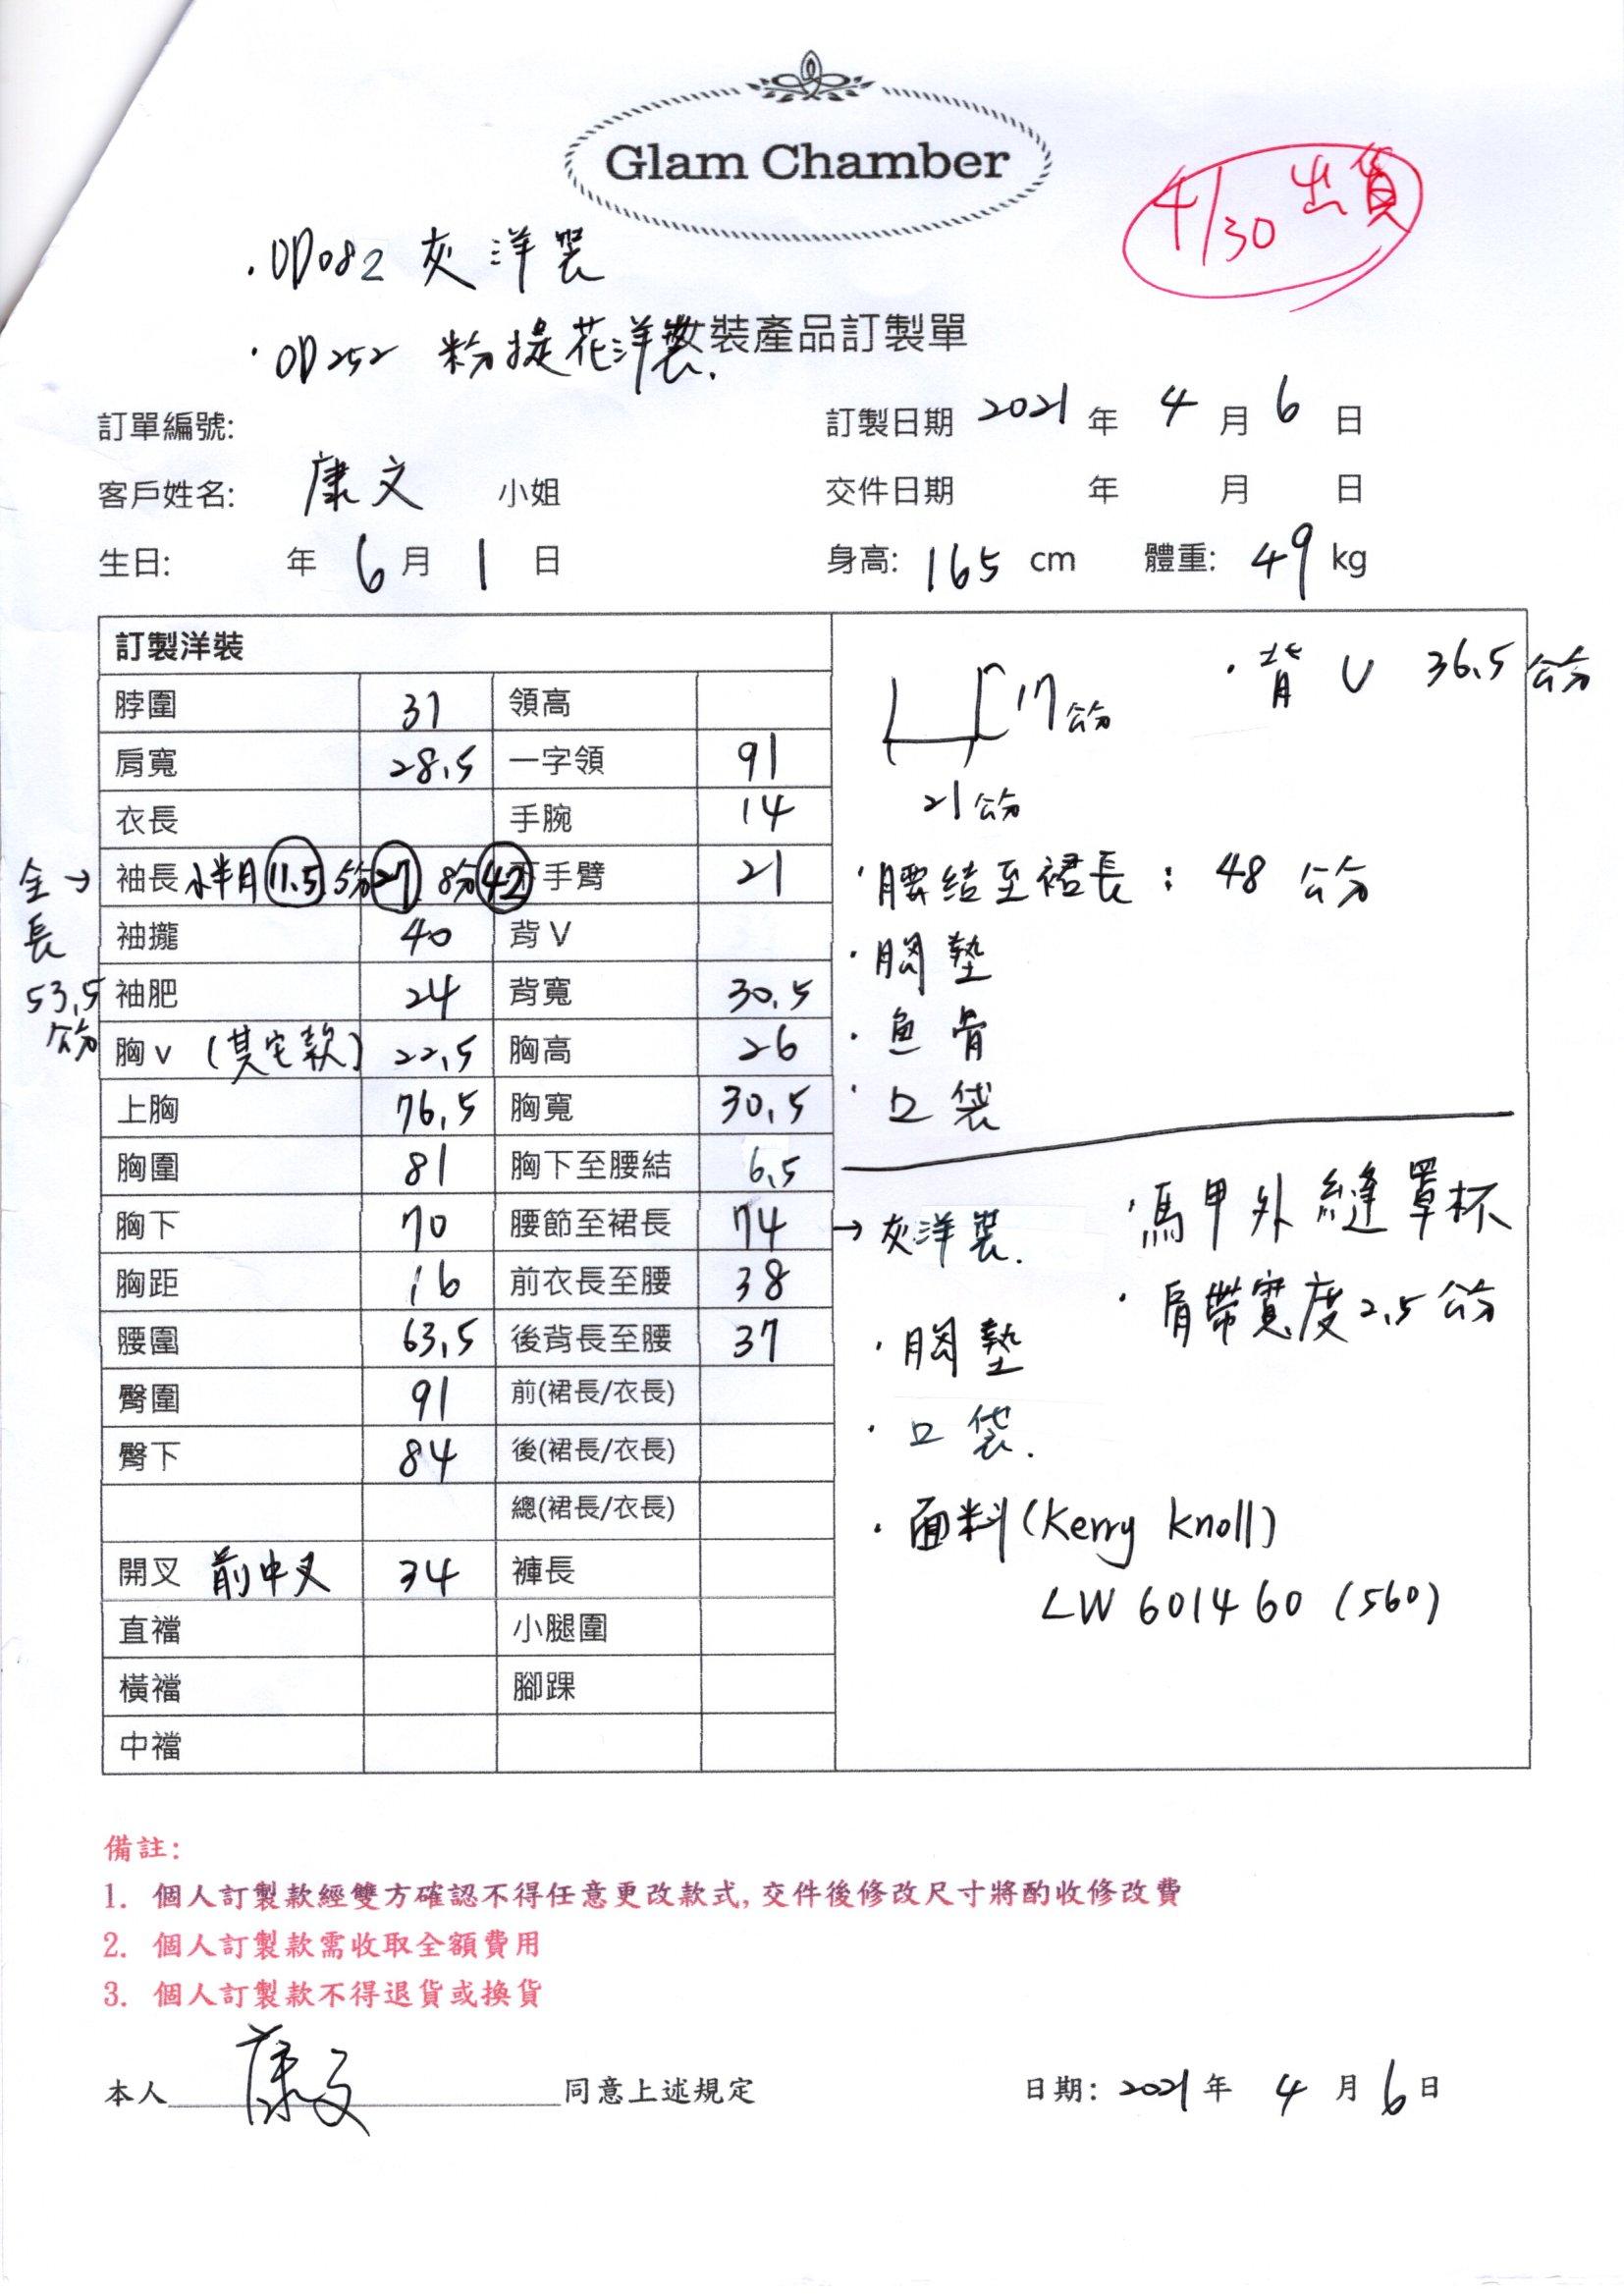 Glam Chamber
4/30 出貨
·OD082 灰洋裝
·OD252 粉提花洋裝.
女裝產品訂製單
訂單編號: 訂製日期 2021 年 4 月 6 日
客戶姓名: 康文 小姐 交件日期 年 月 日
生日: 年 6 月 1 日 身高: 165 cm 體重: 49 kg
訂製洋裝
脖圍 31 領高
肩寬 28.5 一字領 91
衣長 手腕 14
全長 53.5 公分 → 袖長 小半月 11.5 5分 27 8分 42 下手臂 21
袖攏 40 背 V
袖肥 24 背寬 30.5
胸 v (其它款) 22.5 胸高 26
上胸 76.5 胸寬 30.5
胸圍 81 胸下至腰結 6.5
胸下 70 腰節至裙長 74
胸距 16 前衣長至腰 38
腰圍 63.5 後背長至腰 37
臀圍 91 前(裙長/衣長)
臀下 84 後(裙長/衣長)
總(裙長/衣長)
開叉 前中叉 34 褲長
直襠 小腿圍
橫襠 腳踝
中襠
17公分
21公分
·背 V 36.5 公分
·腰結至裙長: 48 公分
·胸墊
·魚骨
·口袋
→ 灰洋裝.
·馬甲外縫罩杯
·肩帶寬度2.5公分
·胸墊
·口袋.
·面料(Kerry Knoll)
LW 601460 (560)
備註:
1. 個人訂製款經雙方確認不得任意更改款式,交件後修改尺寸將酌收修改費
2. 個人訂製款需收取全額費用
3. 個人訂製款不得退貨或換貨
本人 康文 同意上述規定 日期: 2021 年 4 月 6 日